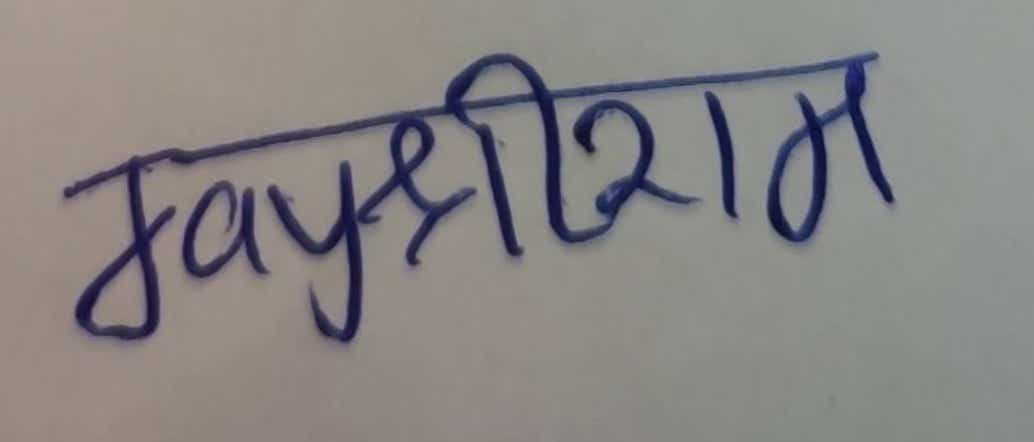 Jayश्रीराम